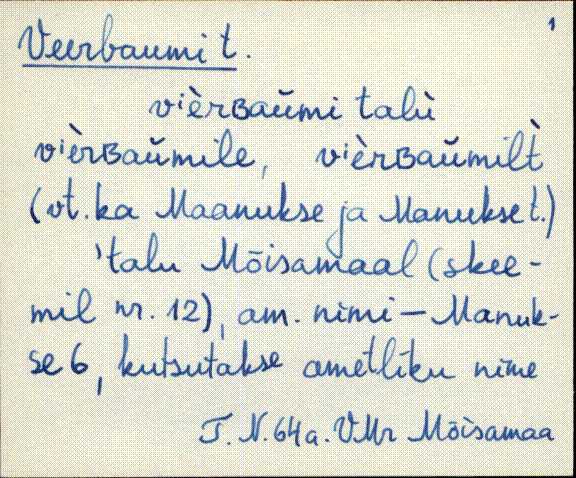 1
Veerbaumi t.
vièrʙaŭmi talù
vièrʙaŭmile, vièrʙaŭmilt̀
(vt. ka Maanukse ja Manukse t.)
'talu Mõisamaal (skee-
mil nr. 12), am. nimi – Manuk-
se 6, kutsutakse ametliku nime
T. N. 64 a. VMr Mõisamaa